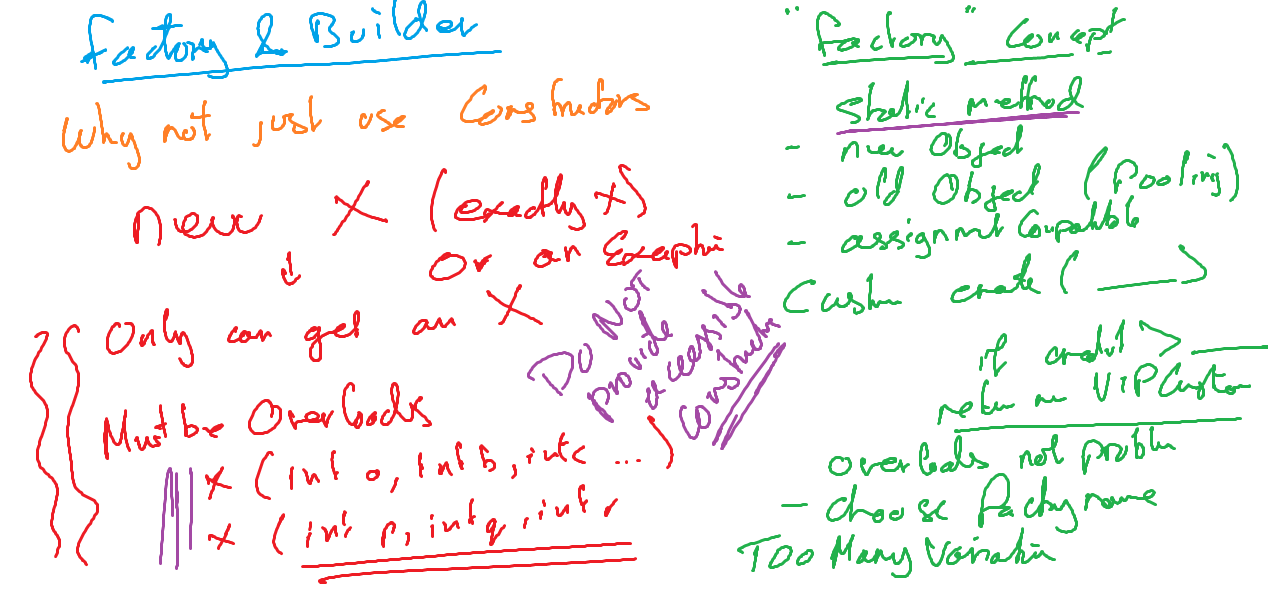 Factory & Builder
Why not just use Constructors
new X (exactly X)
Or an Exception
↓
Only can get an X
Must be Overloads
X (int a, int b, int c ... )
X (int p, int q, int r
Do NOT
provide
accessible
constructor
"Factory" Concept
Static method
- new Object
- old Object (Pooling)
- assignment Compatible
Custom create ( ___ )
if credit > ___
return new VIPCustom
overloads not problem
- choose factory name
Too Many Variation